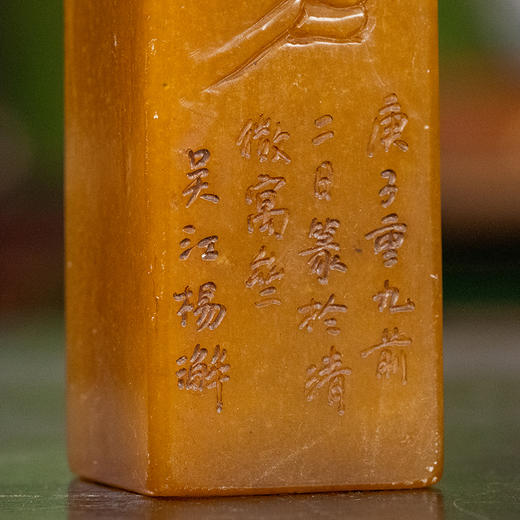 庚子重九前
二日篆於清
微
吴江楊澥